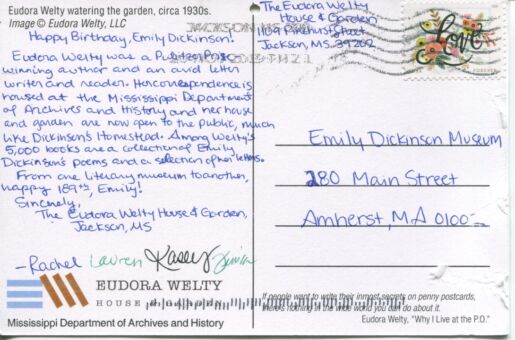 Eudora Welty watering the garden, circa 1930s.
Image © Eudora Welty, LLC
Happy Birthday, Emily Dickinson!
Eudora Welty was a Pulitzer Prize
winning author and an avid letter
writer and reader. Her correspondence is
housed at the Mississippi Department
of Archives and History and her house
and garden are now open to the public, much
like Dickinson's Homestead. Among Welty's
5,000 books are a collection of Emily
Dickinson's poems and a selection of her letters.
From one literary museum to another,
happy 189th, Emily!
Sincerely,
The Eudora Welty House & Garden,
Jackson, MS
-Rachel Lauren Kasey
EUDORA WELTY
HOUSE & GARDEN
Mississippi Department of Archives and History
The Eudora Welty
House & Garden
1109 Pinehurst Street
Jackson, MS 39202
love
FOREVER
Emily Dickinson Museum
280 Main Street
Amherst, MA 0100
If people want to write their inmost secrets on penny postcards,
there's nothing in the wide world you can do about it.
Eudora Welty, "Why I Live at the P.O."